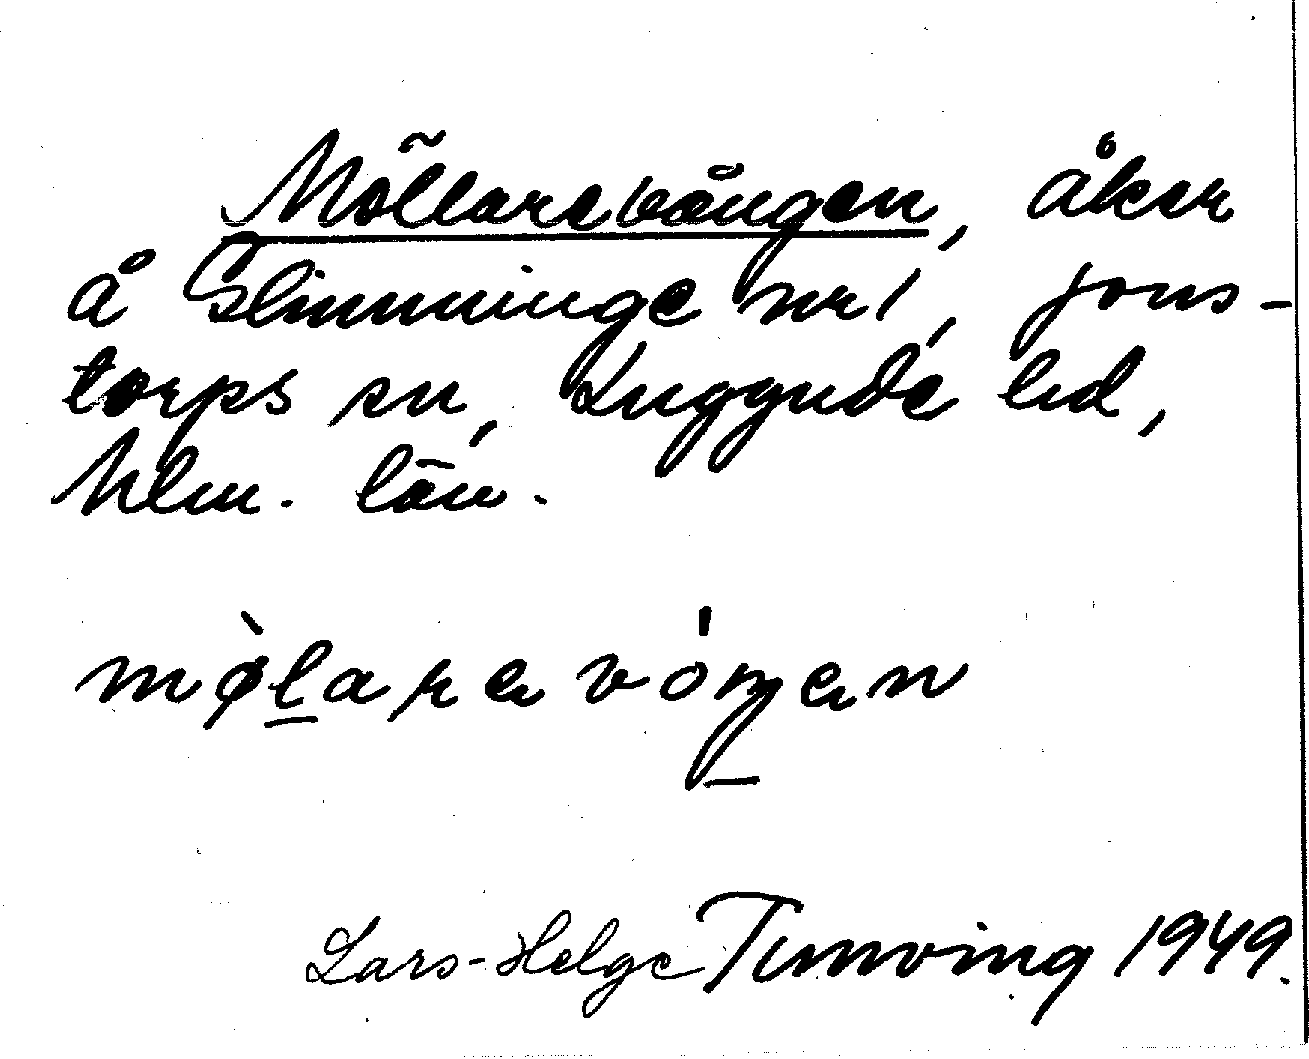 Möllarevången, åker
å Glimminge nr 1, Jons-
torps sn, Luggude hd,
Mlm. län.
mø̀larevóŋen
Lars-Helge Tunving 1949.